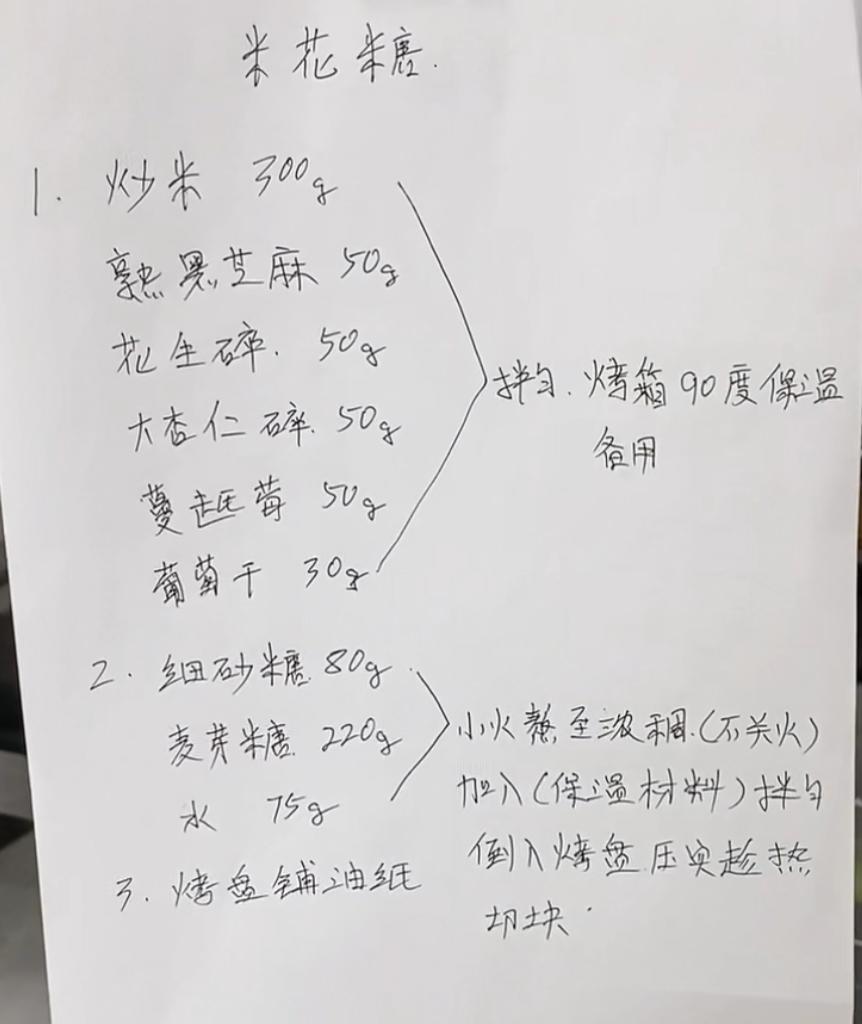 米花糖.
1. 炒米 300g
熟黑芝麻 50g
花生碎. 50g
大杏仁碎. 50g
蔓越莓 50g
葡萄干 30g
拌匀.烤箱90度保温
备用
2. 细砂糖 80g
麦芽糖 220g
水 75g
小火熬至浓稠.(不关火)
加入(保温材料)拌匀
倒入烤盘压实趁热
切块.
3. 烤盘铺油纸